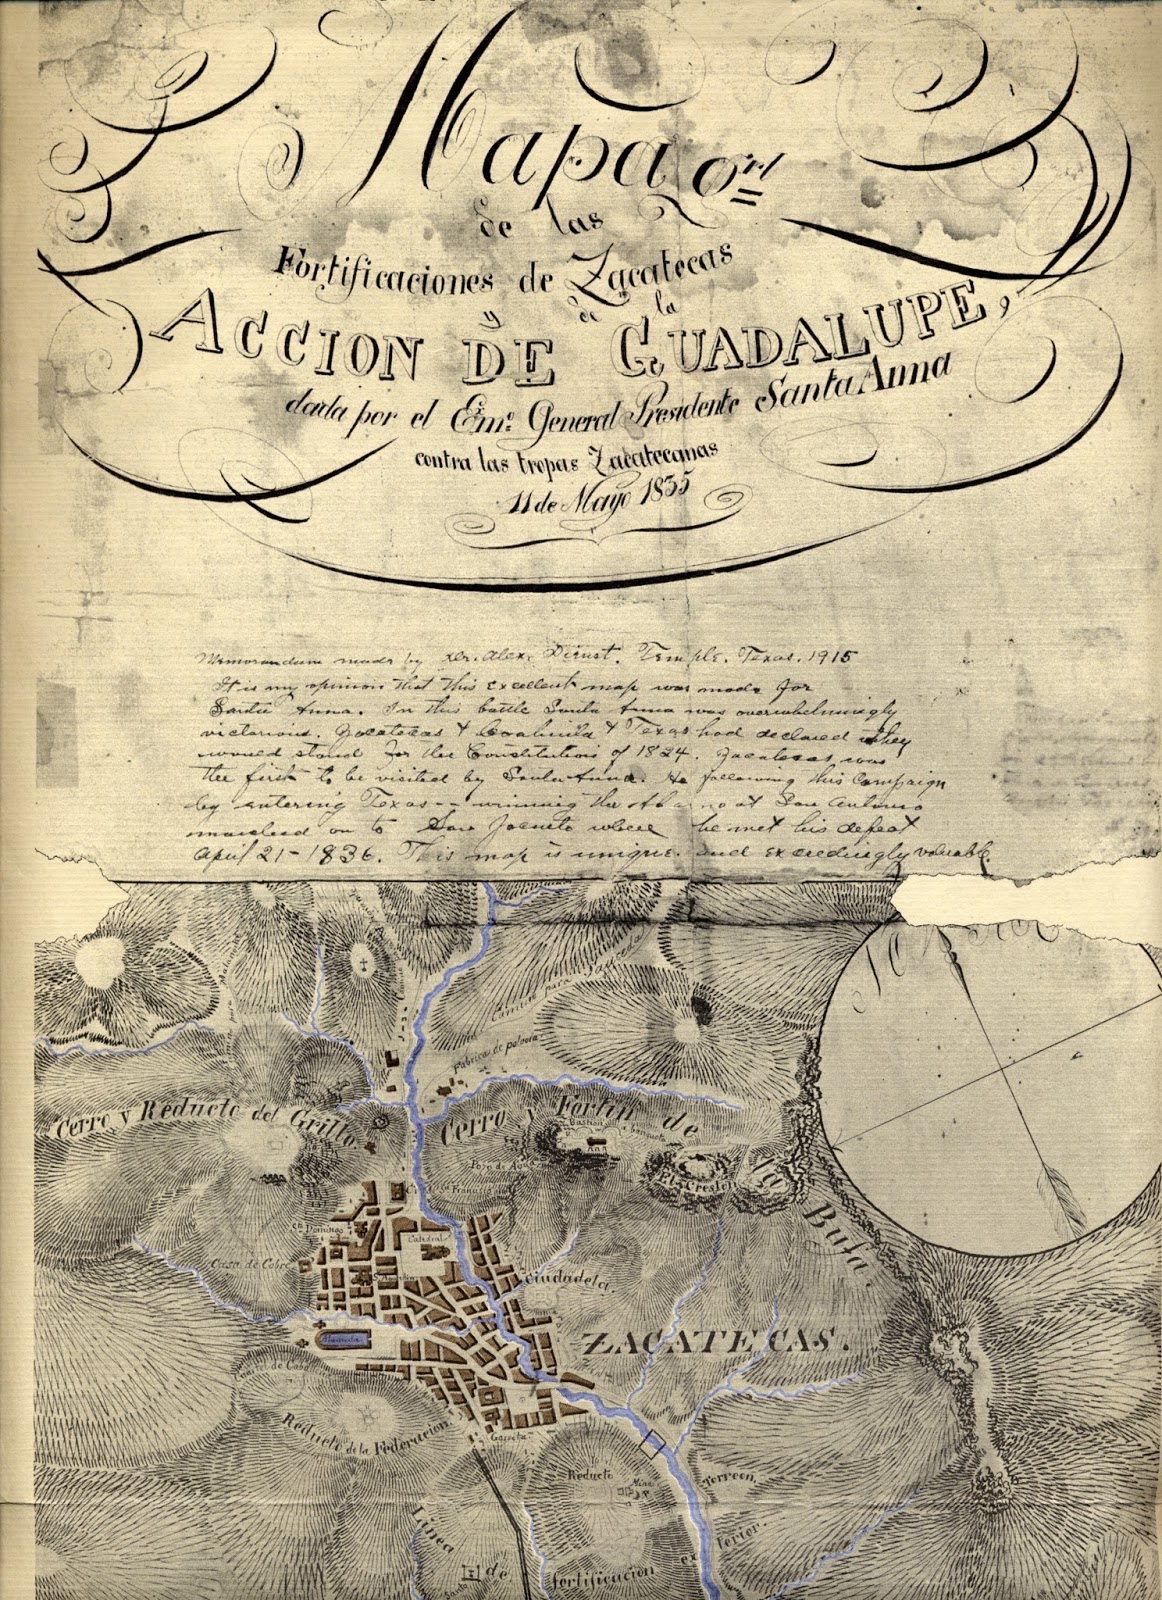 Mapa Orl
de las
Fortificaciones de Zacatecas
y de la
ACCION DE GUADALUPE,
dada por el Exmo. General Presidente Santa Anna
contra las tropas Zacatecanas
11 de Mayo 1835
Memorandum made by Dr. Alex. Dienst. Temple. Texas. 1915
It is my opinion that this excellent map was made for
Santa Anna. In this battle Santa Anna was overwhelmingly
victorious. Zacatecas & Coahuila & Texas had declared they
would stand for the Constitution of 1824. Zacatecas was
the first to be visited by Santa Anna. He following this Campaign
by entering Texas -- winning the Alamo at San Antonio
marched on to San Jacinto where he met his defeat
April 21- 1836. This map is unique and exceedingly valuable.
Camino para
Fabrica de polvora
Cerro y Reducto del Grillo.
Cerro y Fortin de la Bufa.
Bastion
Pozo de Agua
El Creston
Sn. Franco
Sto. Domingo
Catedral
Sn. Agustin
Casa de Cobre
Ciudadela
Alameda
ZACATECAS.
Reducto de la Federacion
Garreta
Reducto
Mina
Torreon exterior.
Linea de fortificacion
Santo